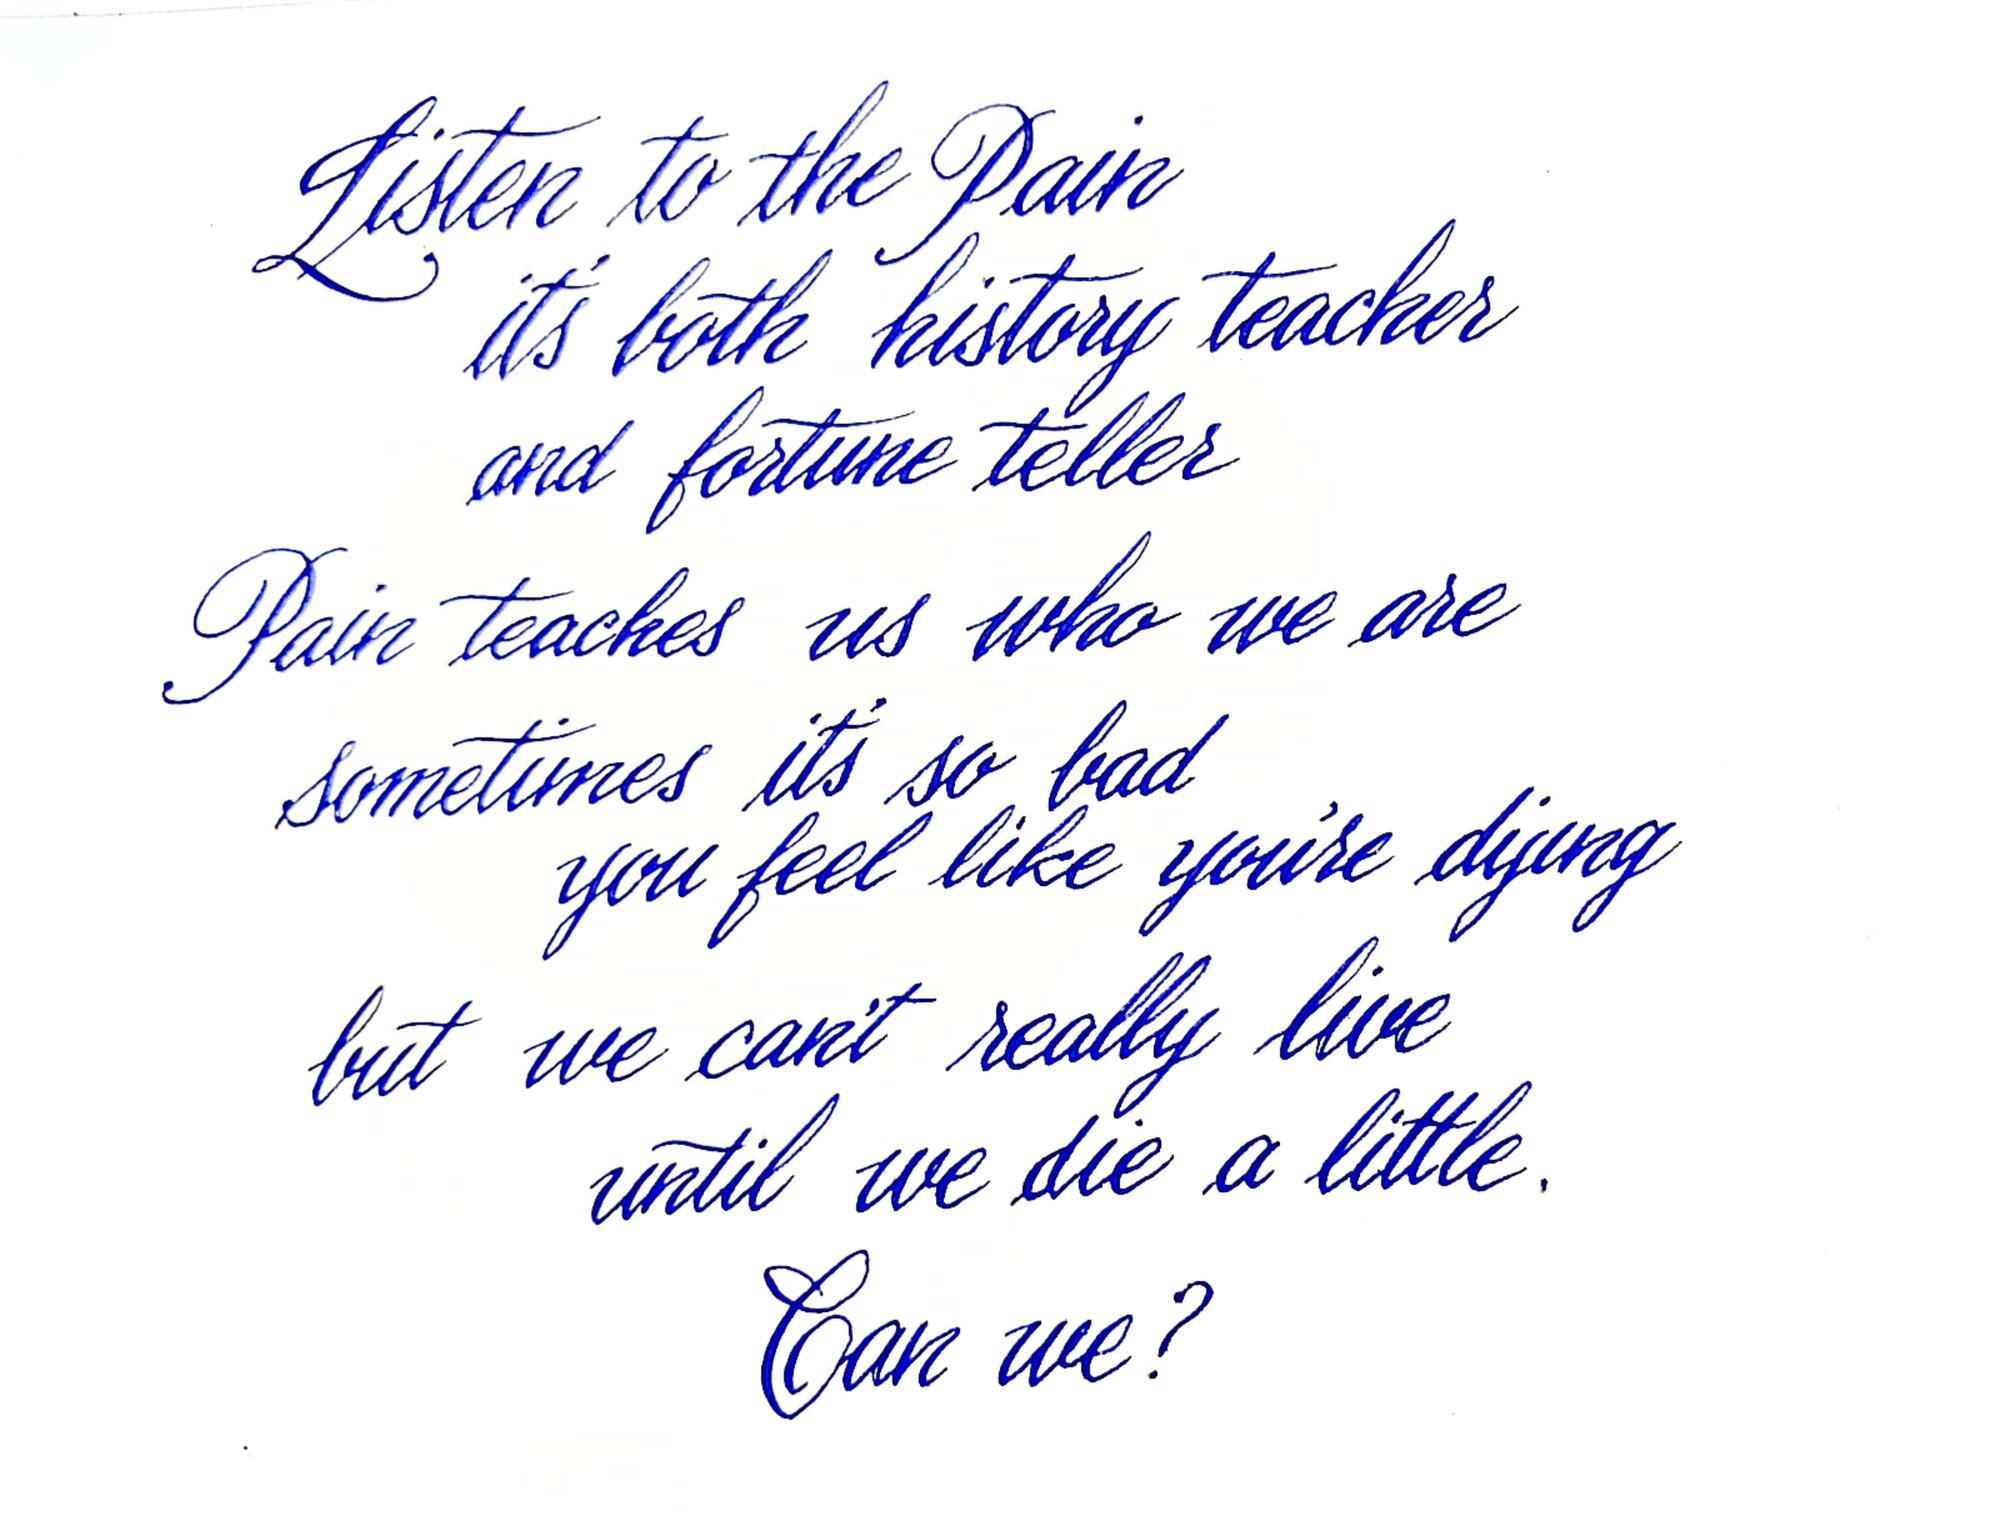 Listen to the Pain
it's both history teacher
and fortune teller
Pain teaches us who we are
sometimes it's so bad
you feel like you're dying
but we can't really live
until we die a little.
Can we?